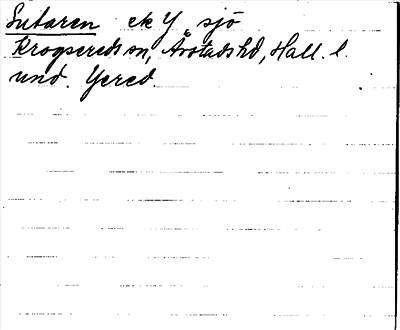 Sutaren ek Y sjö
Krogsereds sn, Årstads hd, Hall. l.
und. Yered.